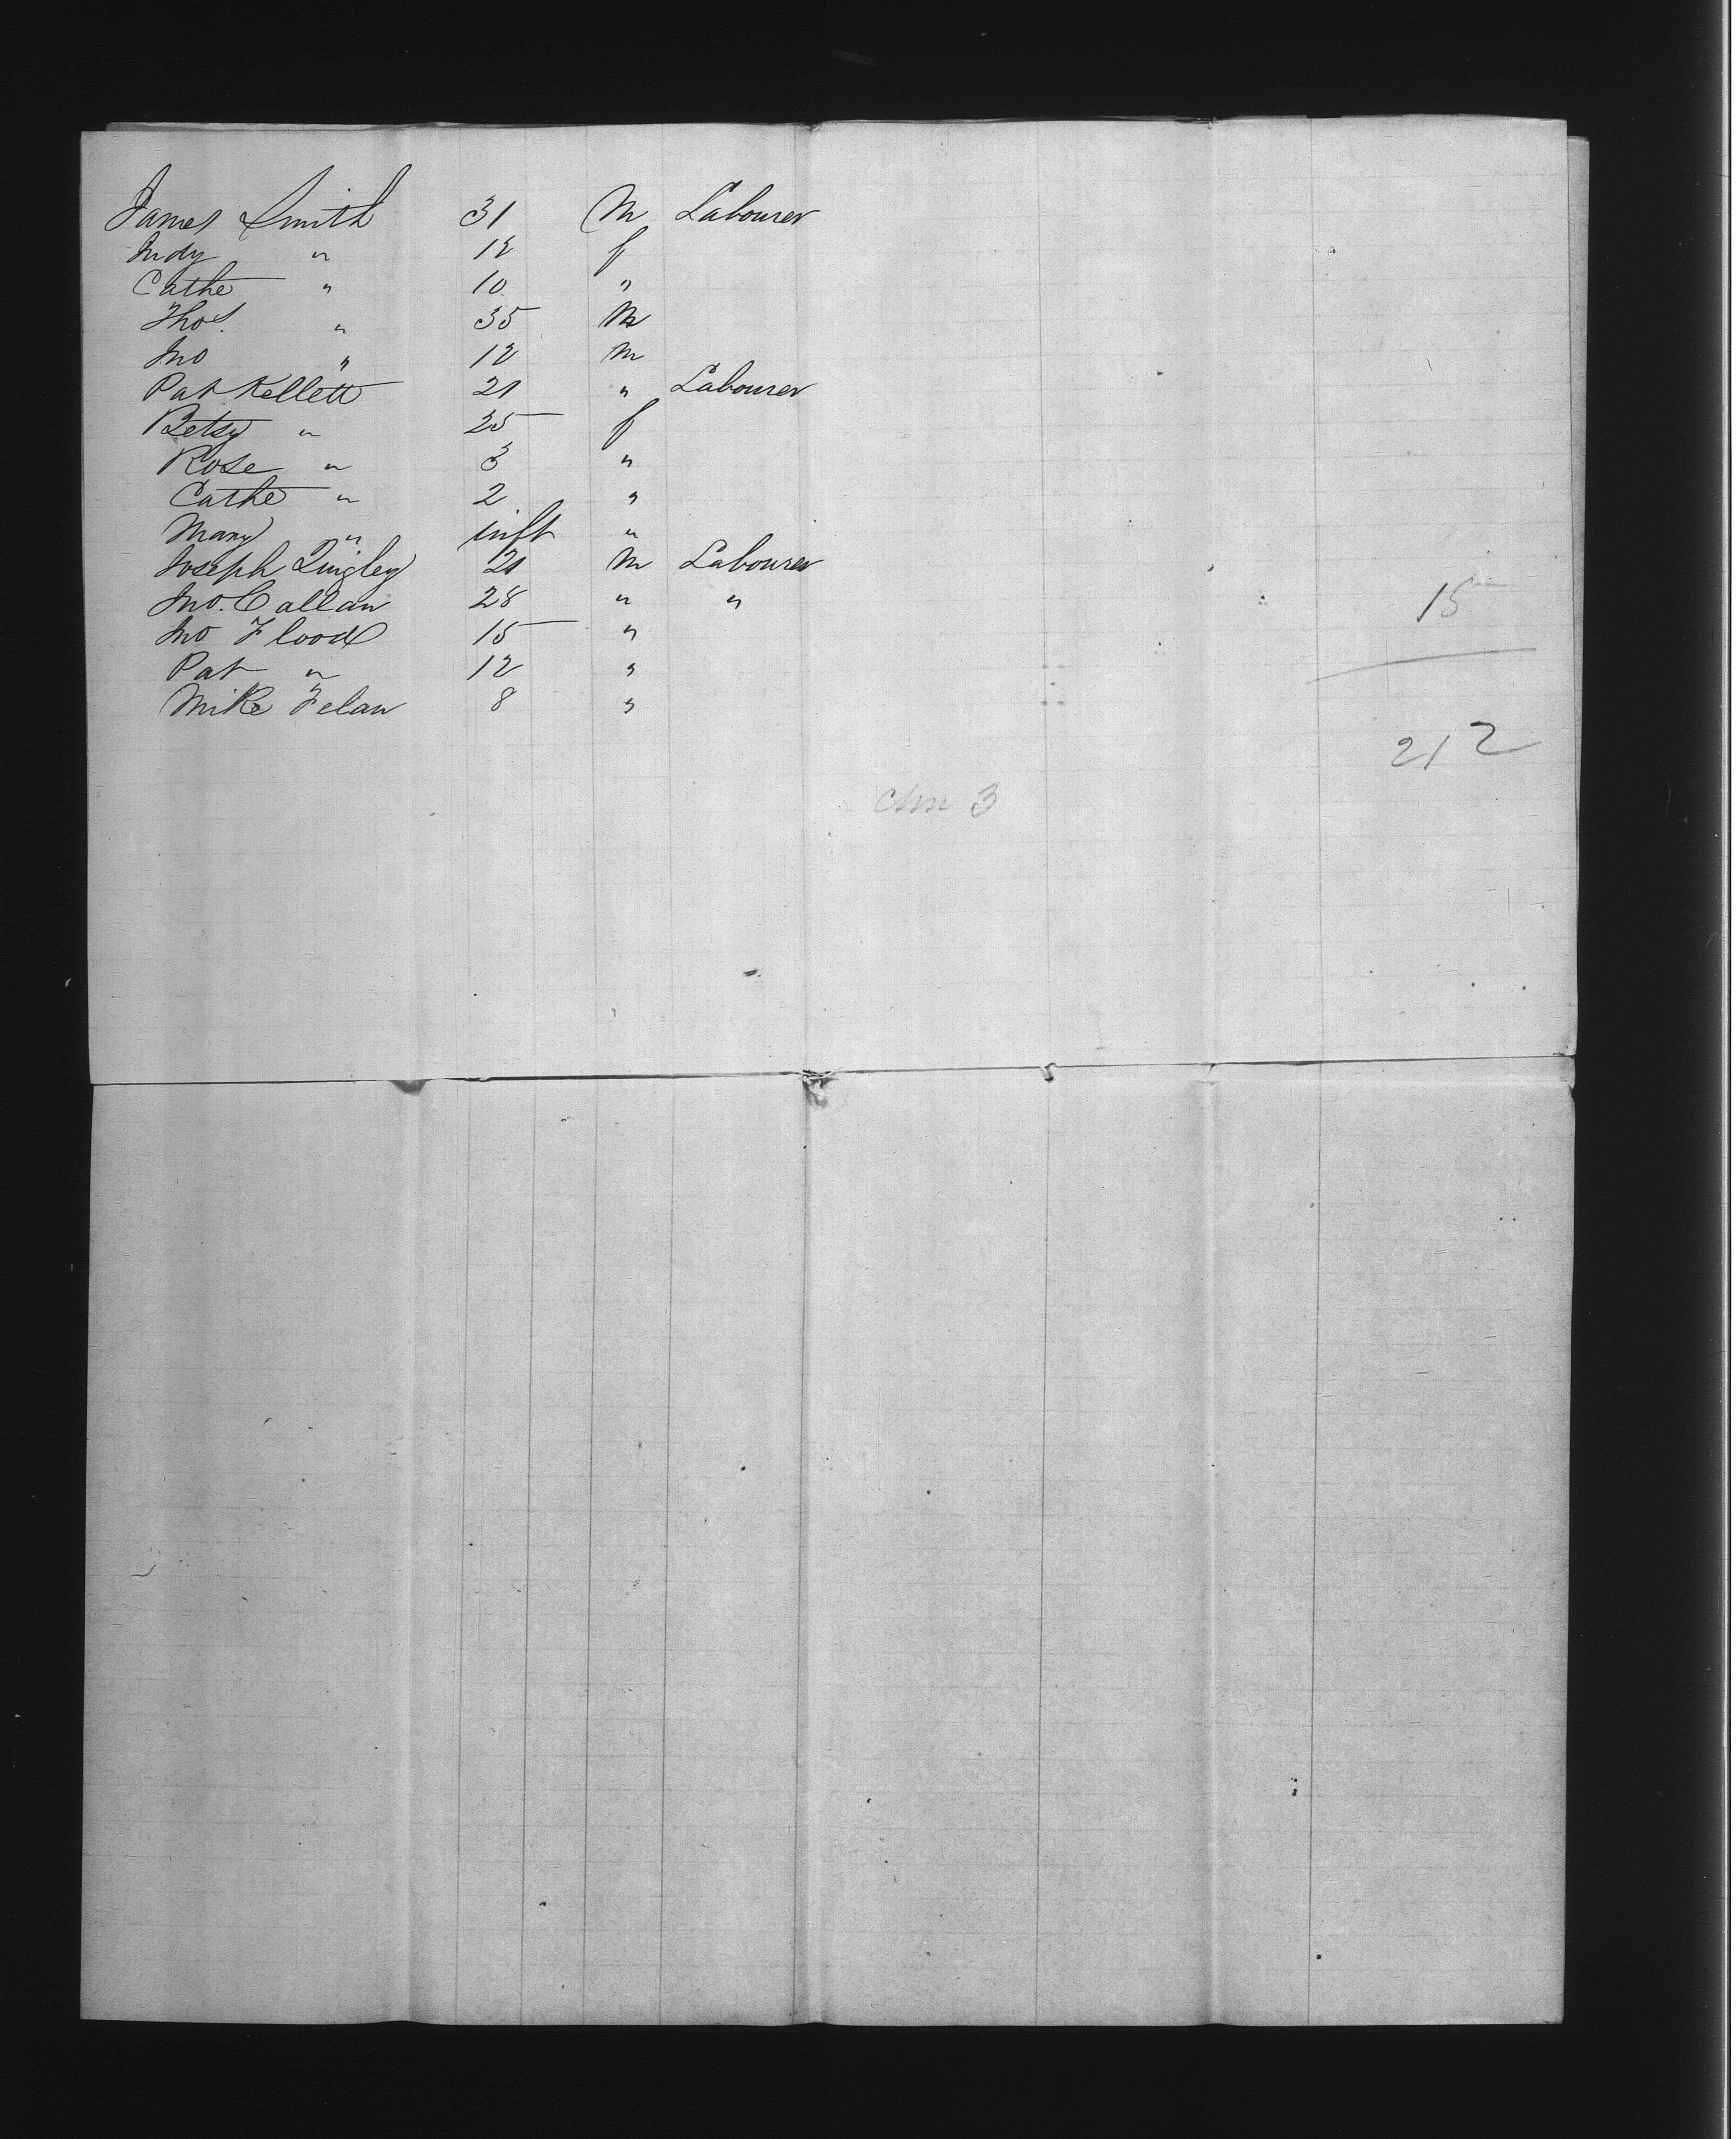 James Smith 31 M Labourer
Judy " 12 f
Cathe " 10 "
Thos. " 35 M
Jno " 12 M
Pat Kellett 21 " Labourer
Betsy " 25 f
Rose " 3 "
Cathe " 2 "
Mary " inft "
Joseph Quigley 21 M Labourer
Jno. Callan 28 " "
Jno Flood 15 "
Pat " 12 "
Mike Felan 8 "
15
212
3